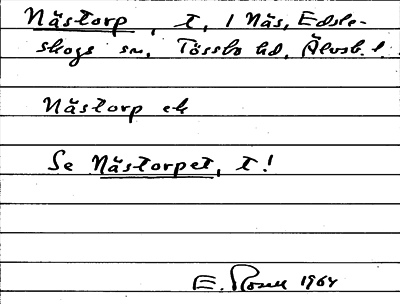 Nästorp, t, / Näs, Edsle-
skogs sn, Tössbo hd, Älvsb. l.
Nästorp ek
Se Nästorpet, t!
E. Rosell 1964